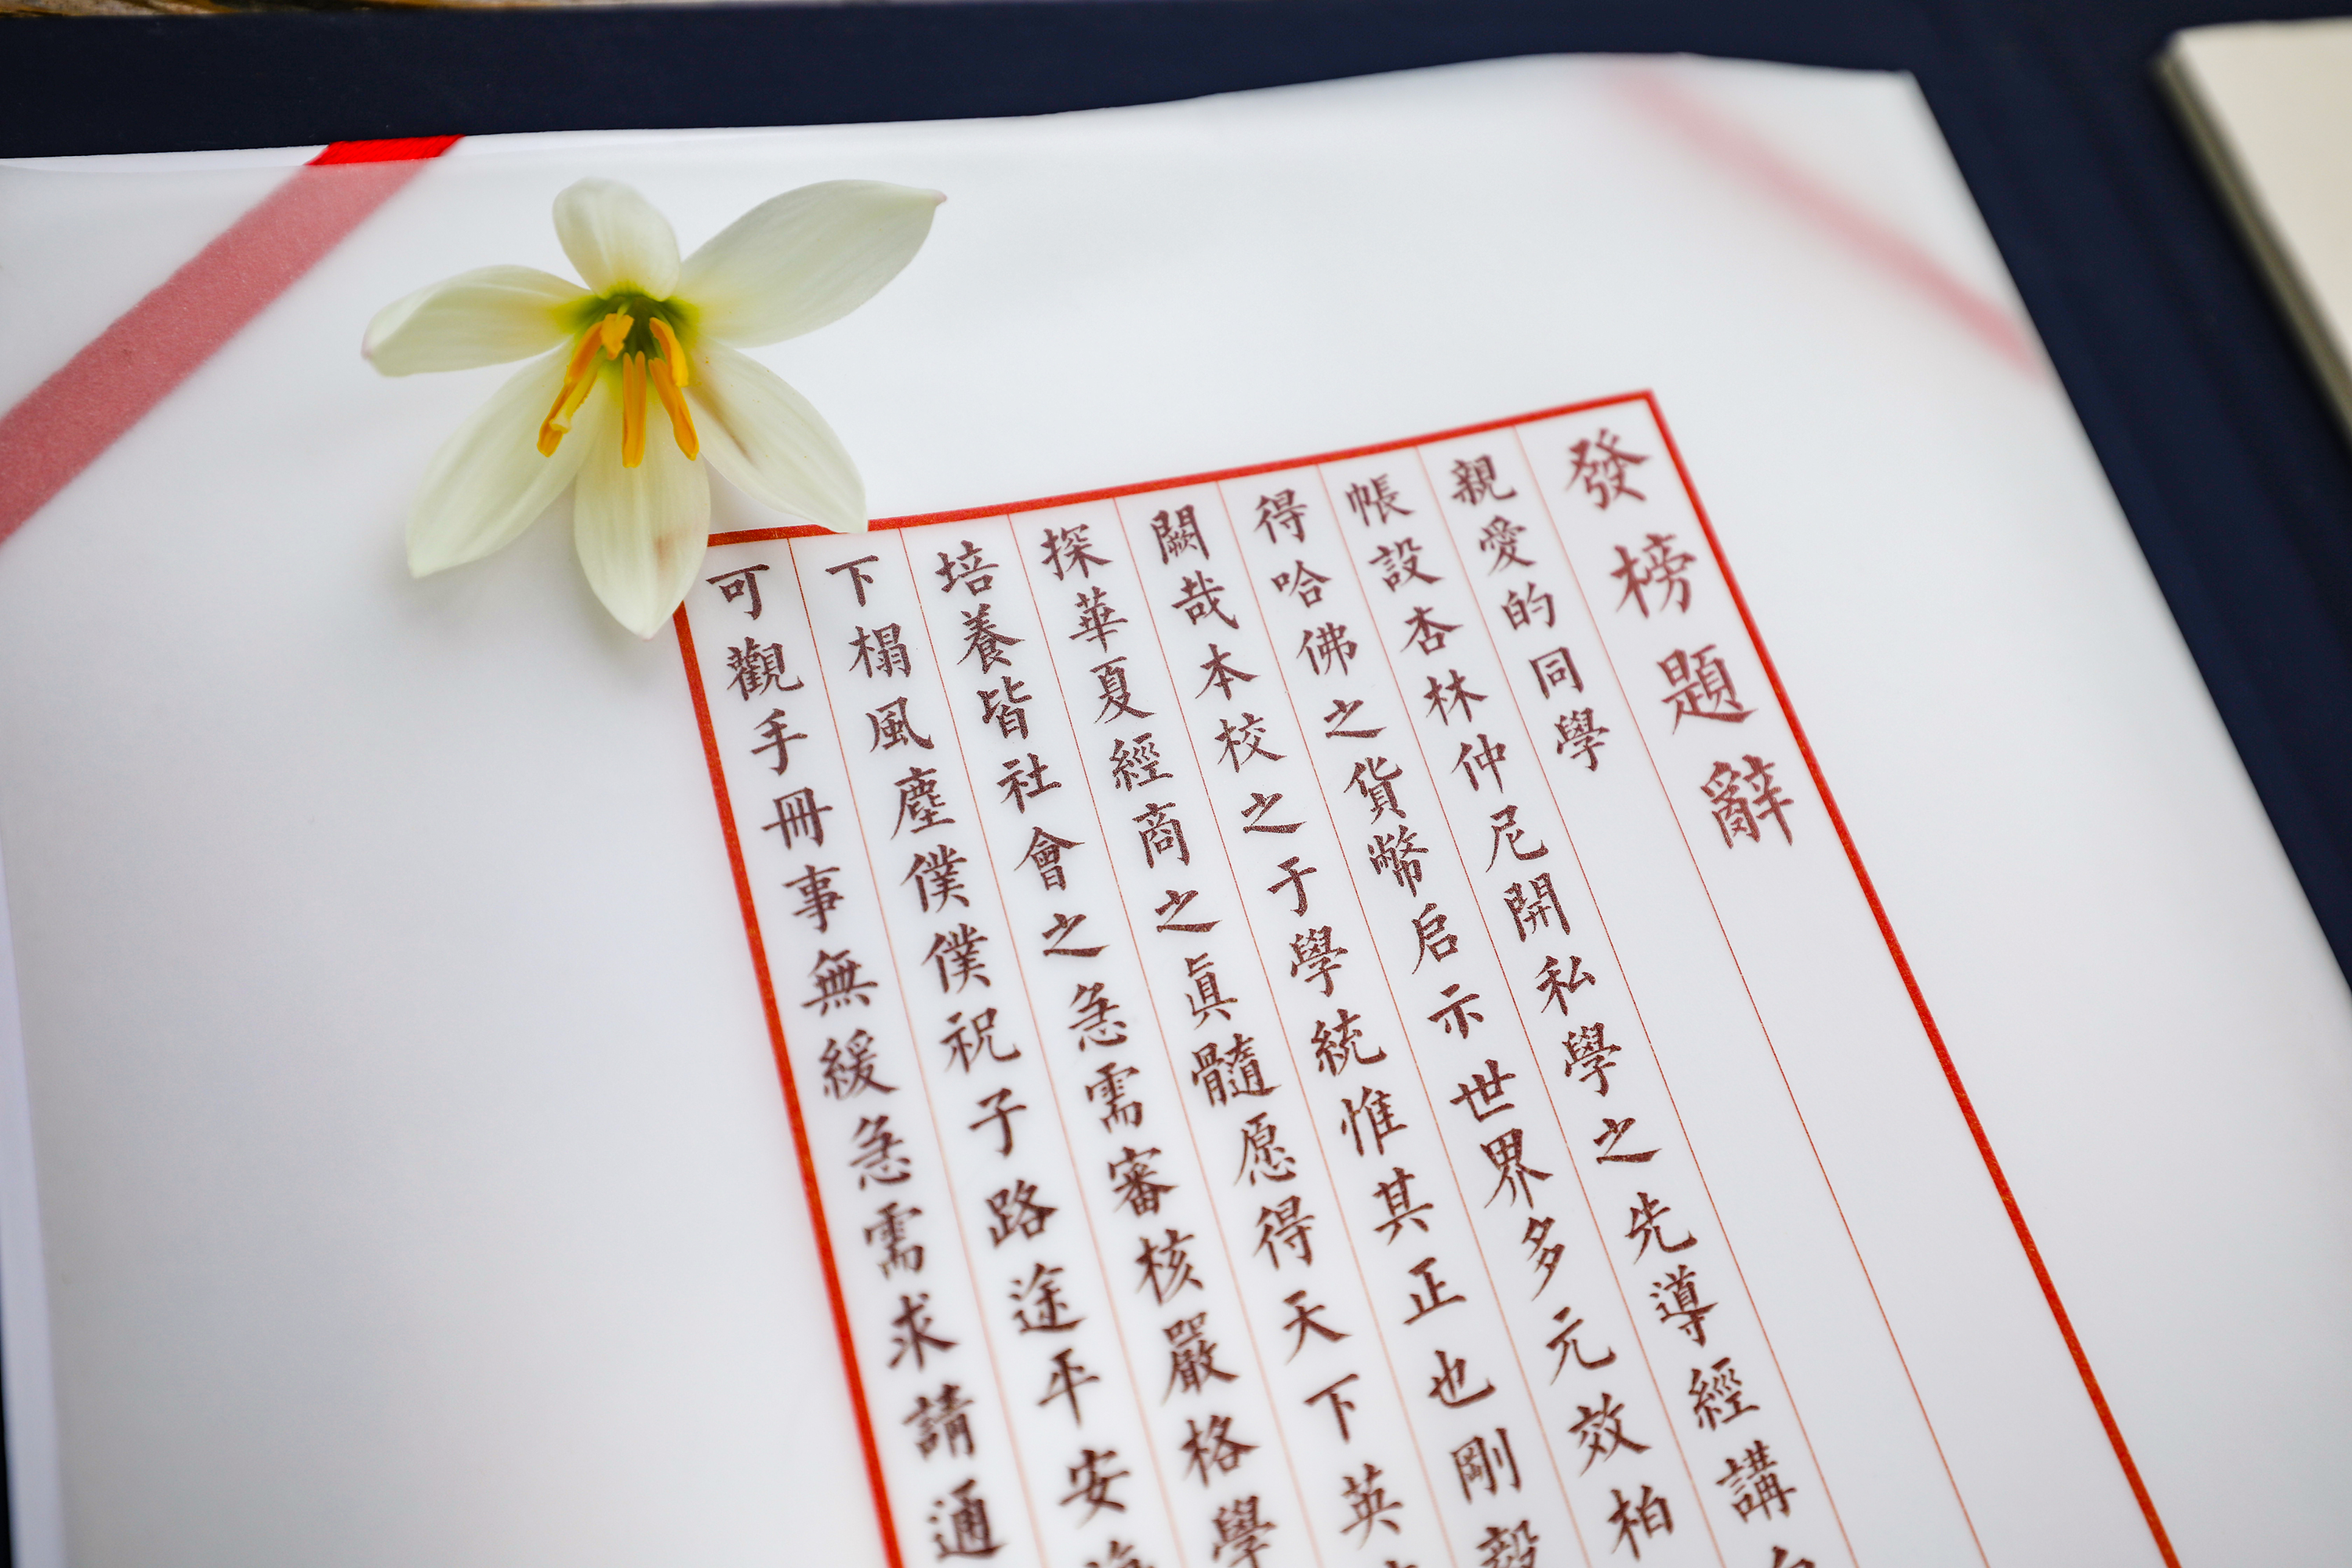 發榜題辭
親愛的同學
帳設杏林仲尼開私學之先導經講
得哈佛之貨幣启示世界多元效柏
闕哉本校之于學統惟其正也剛毅
探華夏經商之眞髓愿得天下英
培養皆社會之急需審核嚴格學
下榻風塵僕僕祝子路途平安
可觀手冊事無緩急需求請通